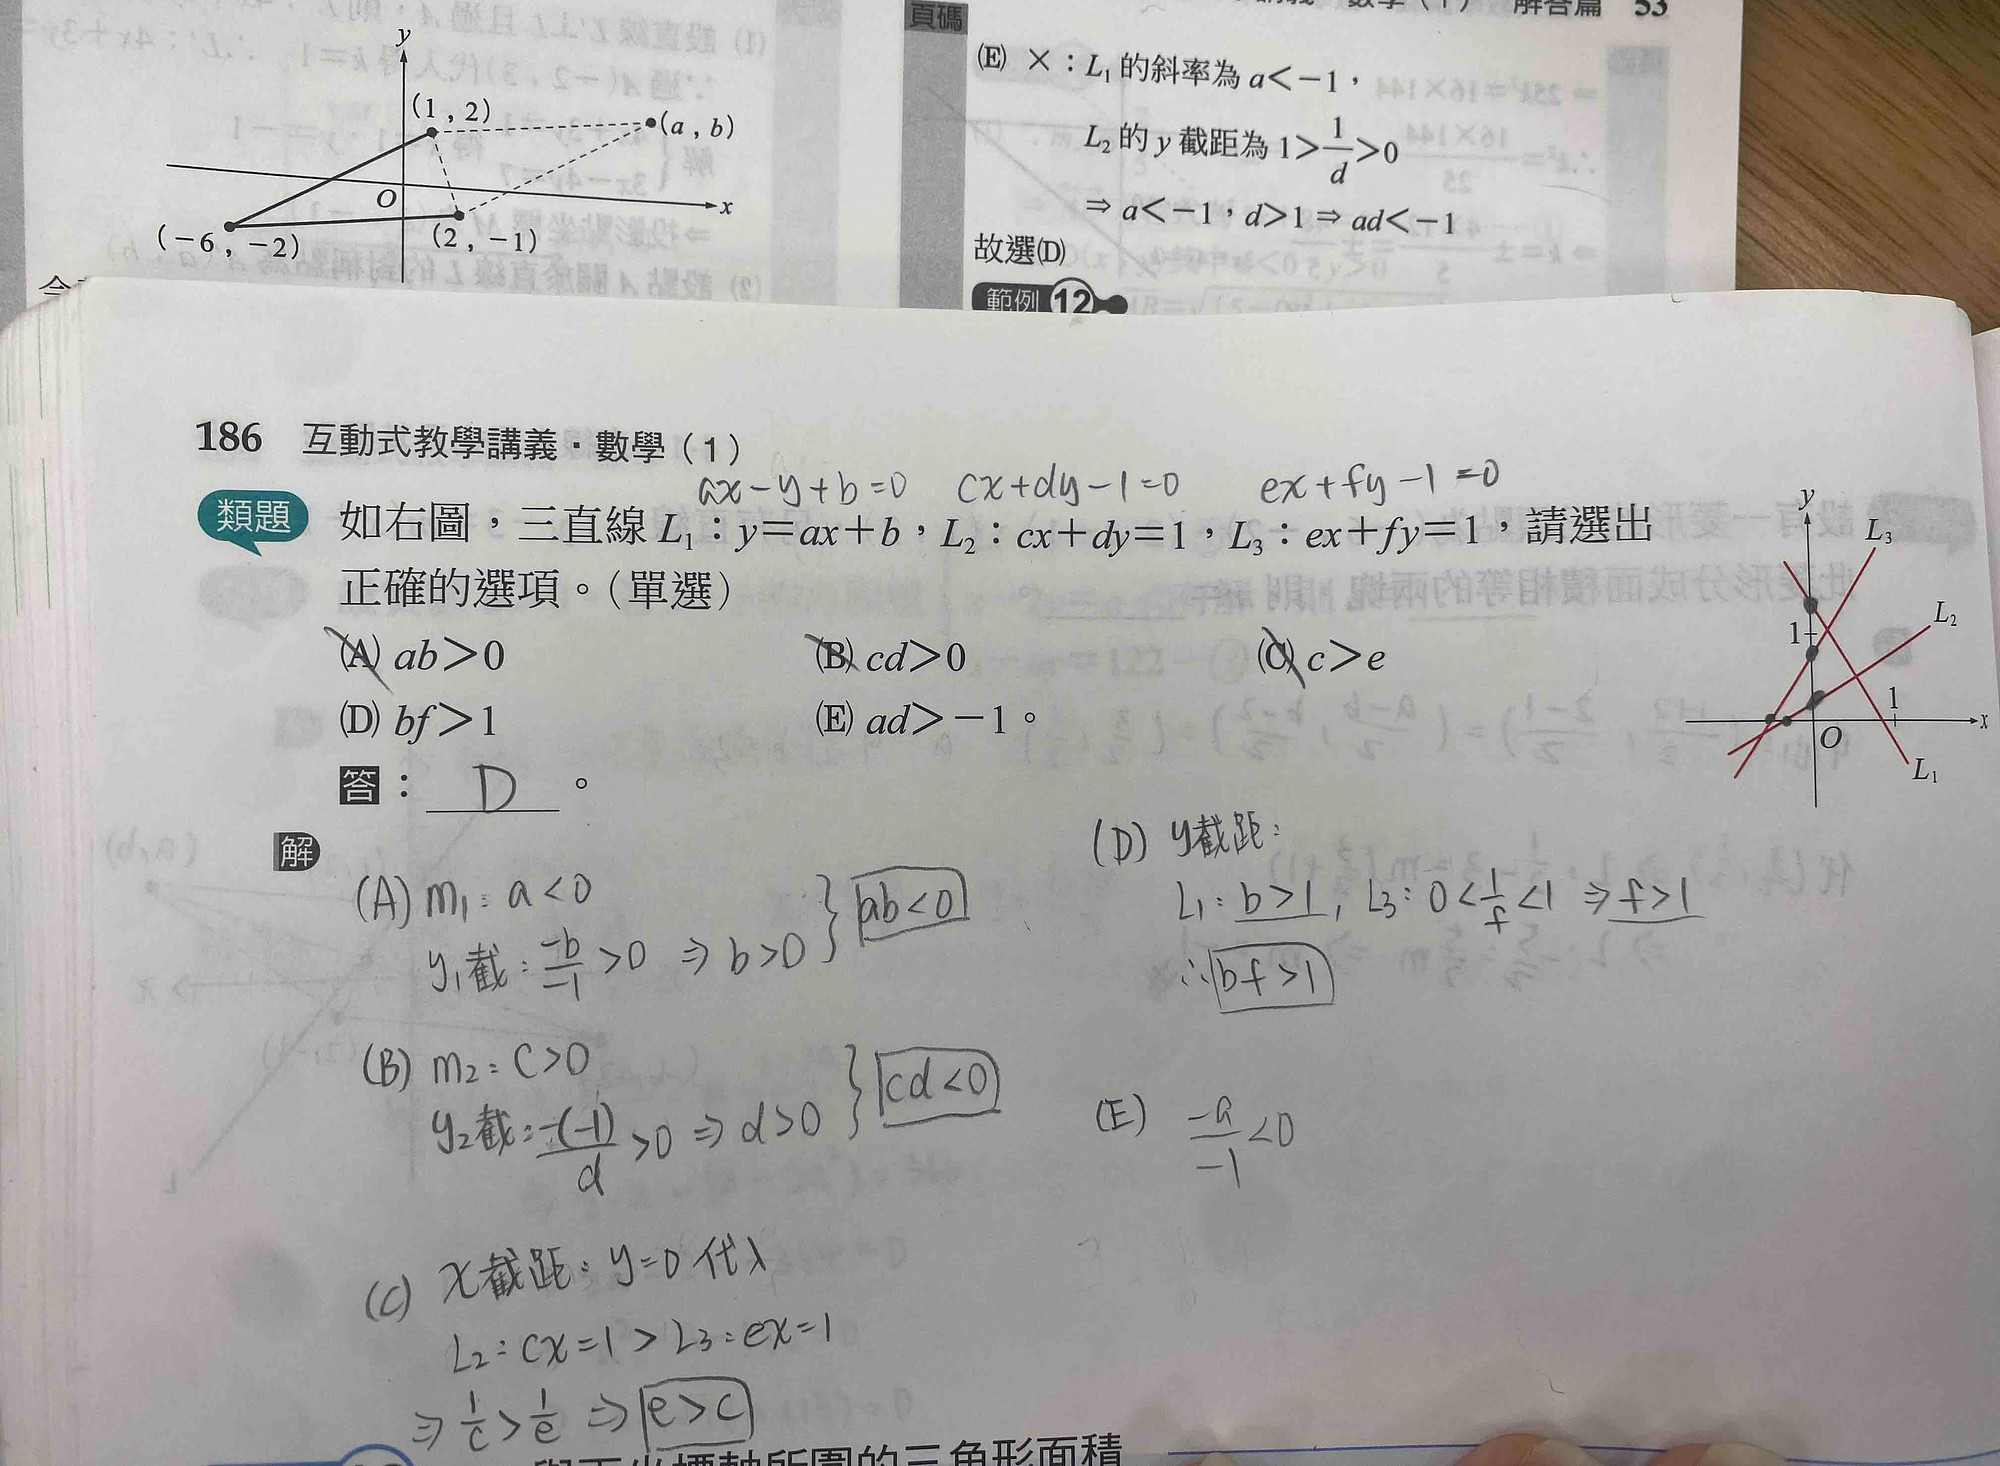 y
(1, 2)
(a, b)
O
x
(-6, -2)
(2, -1)
頁碼
解答篇 53
(E) ×：L₁的斜率為 a<-1，
L₂的 y 截距為 1>1/d>0
⇒ a<-1，d>1 ⇒ ad<-1
故選(D)
範例 12
186 互動式教學講義．數學（1）
ax-y+b=0 cx+dy-1=0 ex+fy-1=0
類題 如右圖，三直線 L₁：y=ax+b，L₂：cx+dy=1，L₃：ex+fy=1，請選出
正確的選項。（單選）
(A) ab>0 (B) cd>0 (C) c>e
(D) bf>1 (E) ad>-1。
答：D。
y
L₃
L₂
1
1
O
x
L₁
解
(A) m₁: a<0
y₁截: -b/-1 >0 ⇒ b>0 } ab<0
(B) m₂: C>0
y₂截: -(-1)/d >0 ⇒ d>0 } cd<0
(C) x截距: y=0 代入
L₂: cx=1 > L₃: ex=1
⇒ 1/c > 1/e ⇒ e>c
(D) y截距:
L₁: b>1, L₃: 0<1/f<1 ⇒ f>1
∴ bf>1
(E) -a/-1 <0